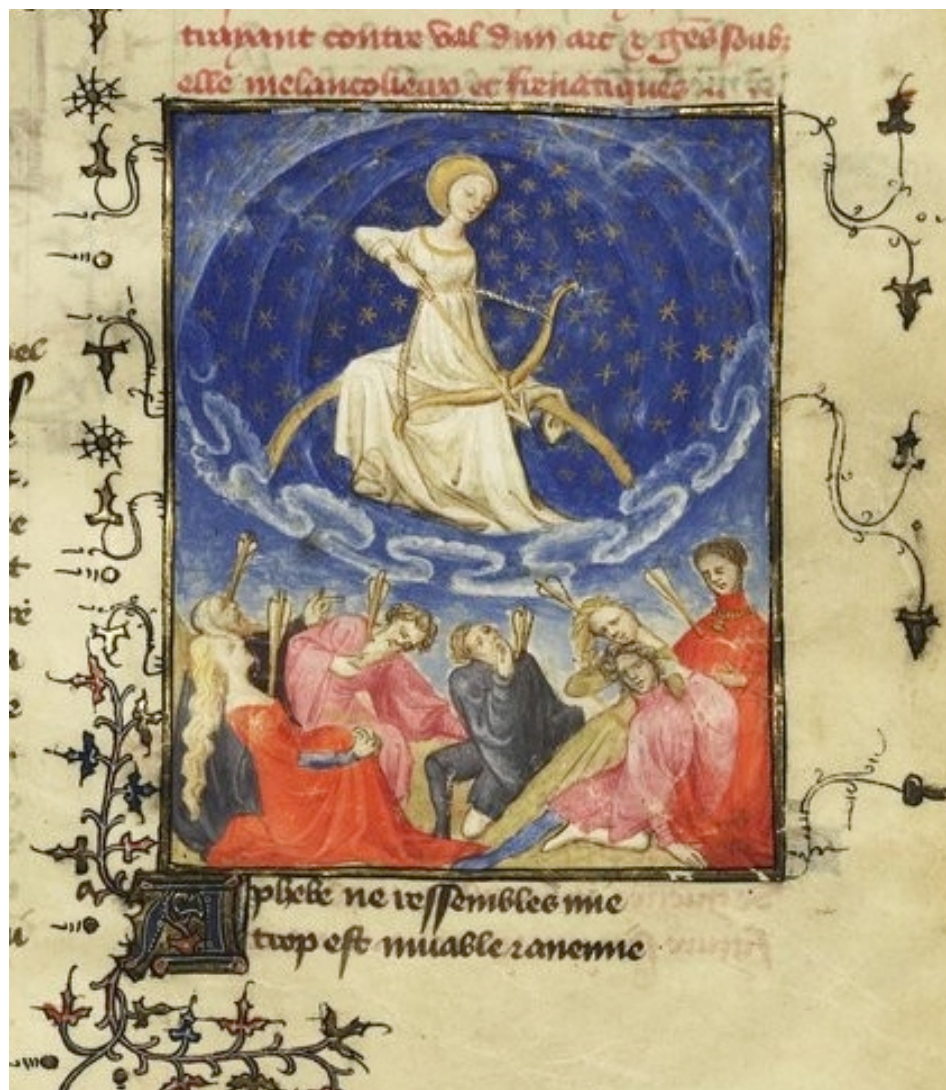 trayant contre val dun arc ⁊ gēs soubz
elle melancolieux et frenatiques
A phebe ne ressembles mie
trop est muable ⁊ anemie